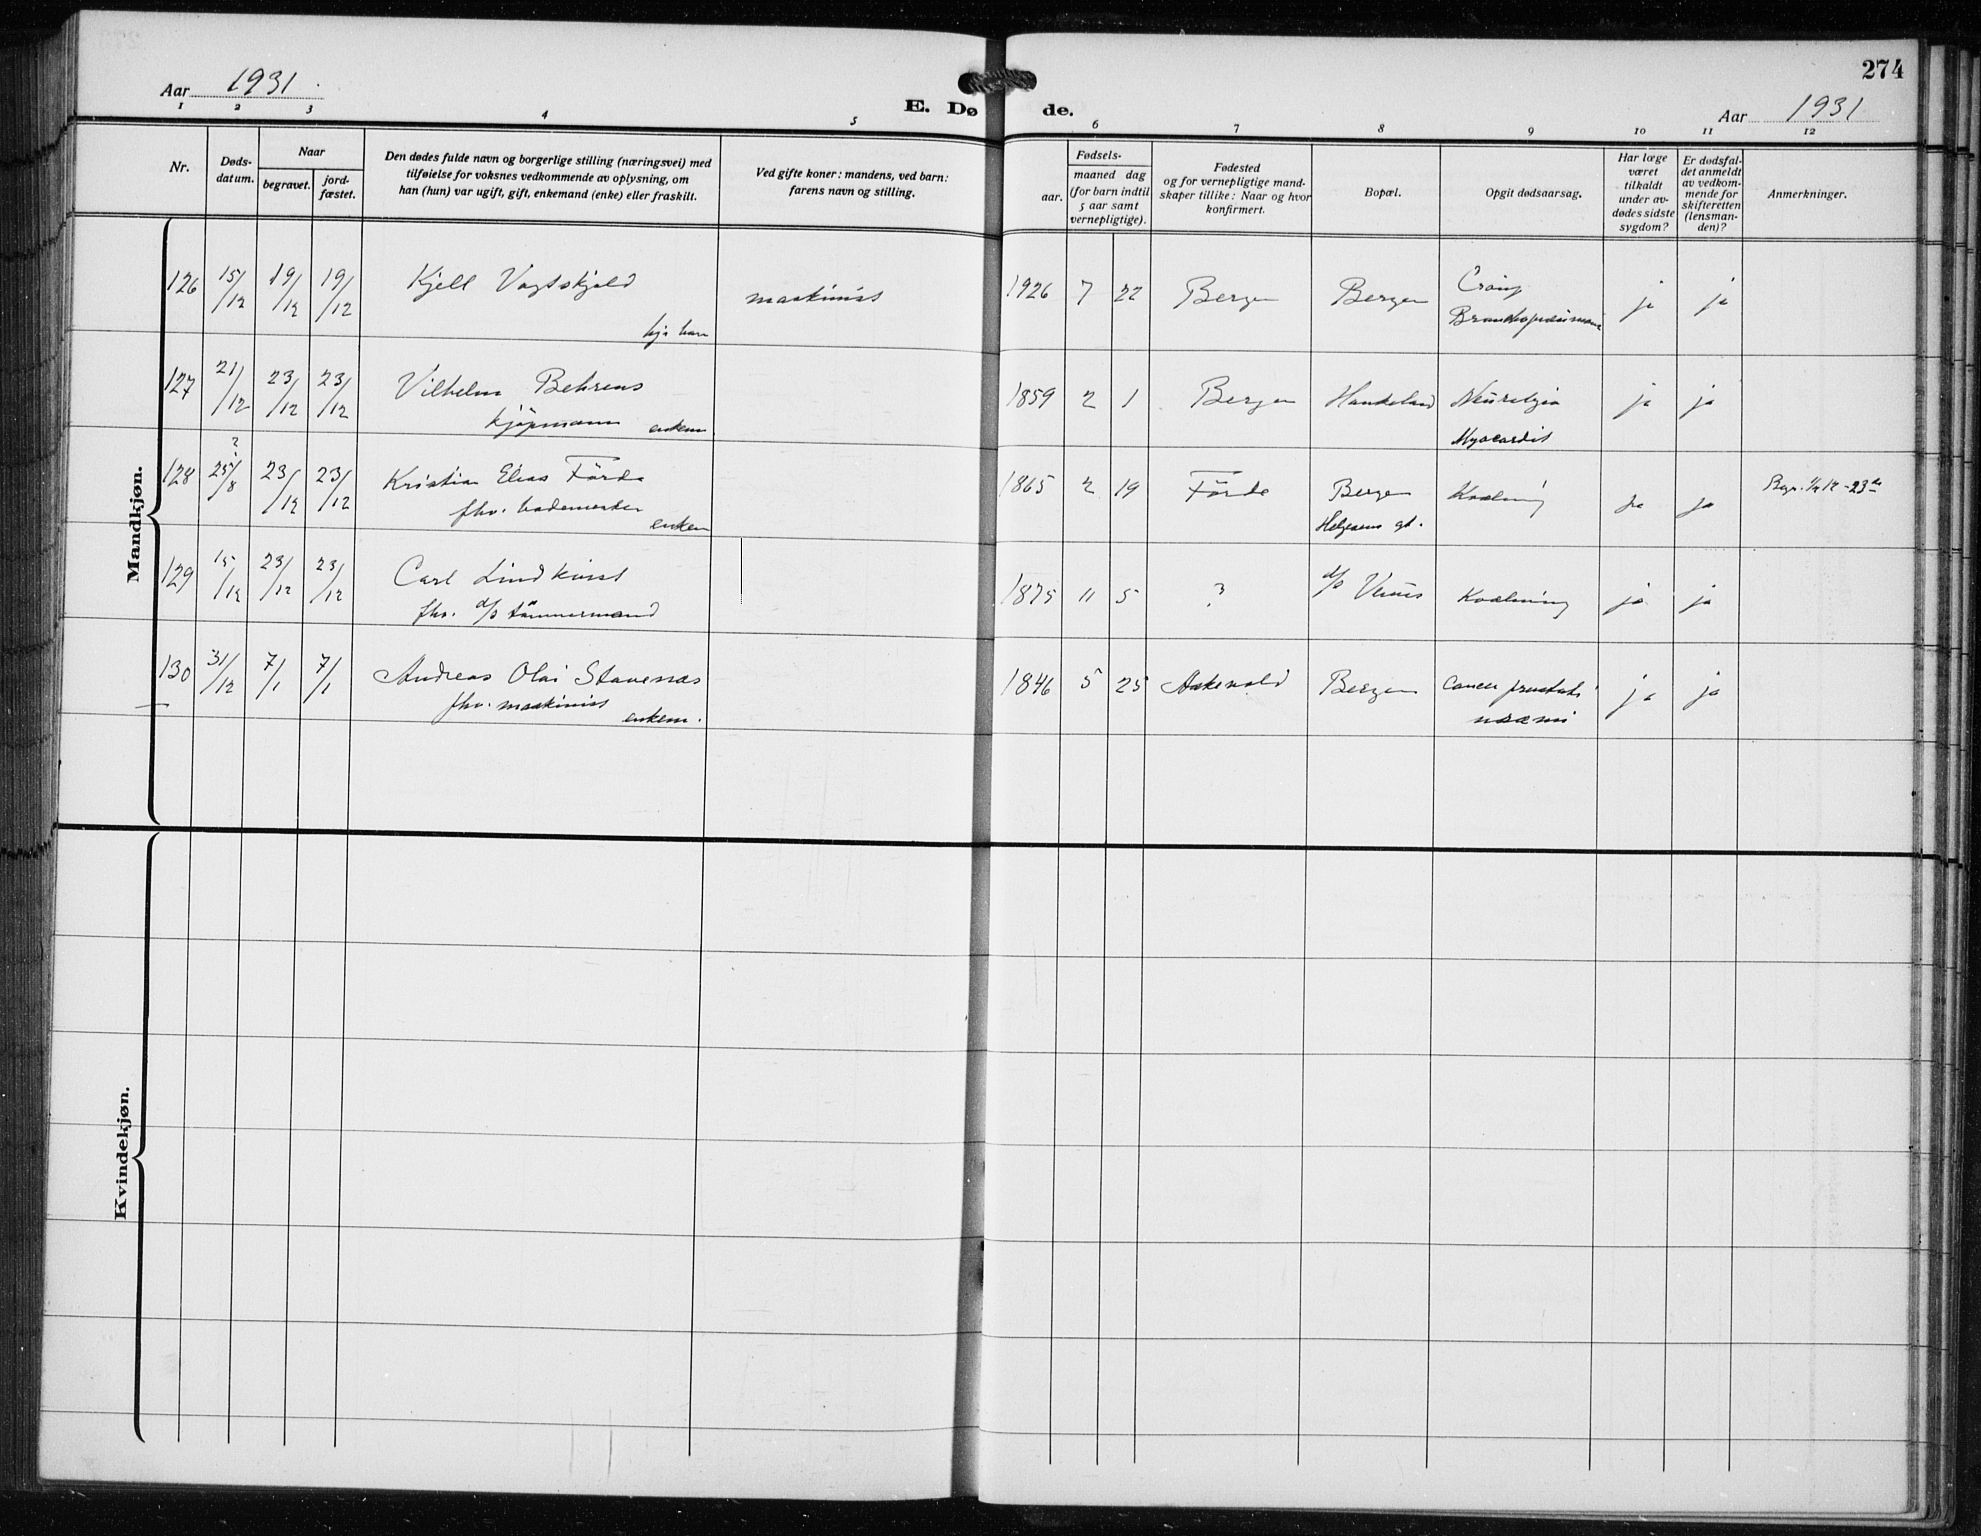 274
Aar 1931
E. Døde.
Aar 1931
1 2 3 4 5 6 7 8 9 10 11 12
Nr.
Døds-
datum.
Naar
begravet.
jord-
fæstet.
Den dødes fulde navn og borgerlige stilling (næringsvei) med
tilføielse for voksnes vedkommende av oplysning, om
han (hun) var ugift, gift, enkemand (enke) eller fraskilt.
Ved gifte koner: mandens, ved barn:
farens navn og stilling.
Fødsels-
aar.
maaned dag
(for barn indtil
5 aar samt
vernepligtige).
Fødested
og for vernepligtige mand-
skaper tillike: Naar og hvor
konfirmert.
Bopæl.
Opgit dødsaarsag.
Har læge
været
tilkaldt
under av-
dødes sidste
sygdom?
Er dødsfal-
det anmeldt
av vedkom-
mende for
skifteretten
(lensman-
den)?
Anmerkninger.
Mandkjøn.
126 15/12 19/12 19/12 Kjell Vogtskjold maskinist 1926 7 22 Bergen Bergen Croup ja ja
127 21/12 23/12 23/12 Vilhelm Behrens 1859 2 1 Bergen Haukeland Neuralgia ja ja
kjøpmann enkem
Myocardit
128 25/8 ? 23/12 23/12 Kristian Elias Förde 1865 2 19 Förde Bergen Kvælning ja ja
fhv. bademester enkem
Helgesens gt.
129 15/12 23/12 23/12 Carl Lindkvist 1875 11 5 ? d/s Venus Kvælning ja ja
fhv. d/s tömmermand
130 31/12 7/1 7/1 Andreas Olai Stavenæs 1846 5 25 Askevold Bergen Cancer prostat ja ja
fhv. maskinist enkem.
uræmi
Kvindekjøn.